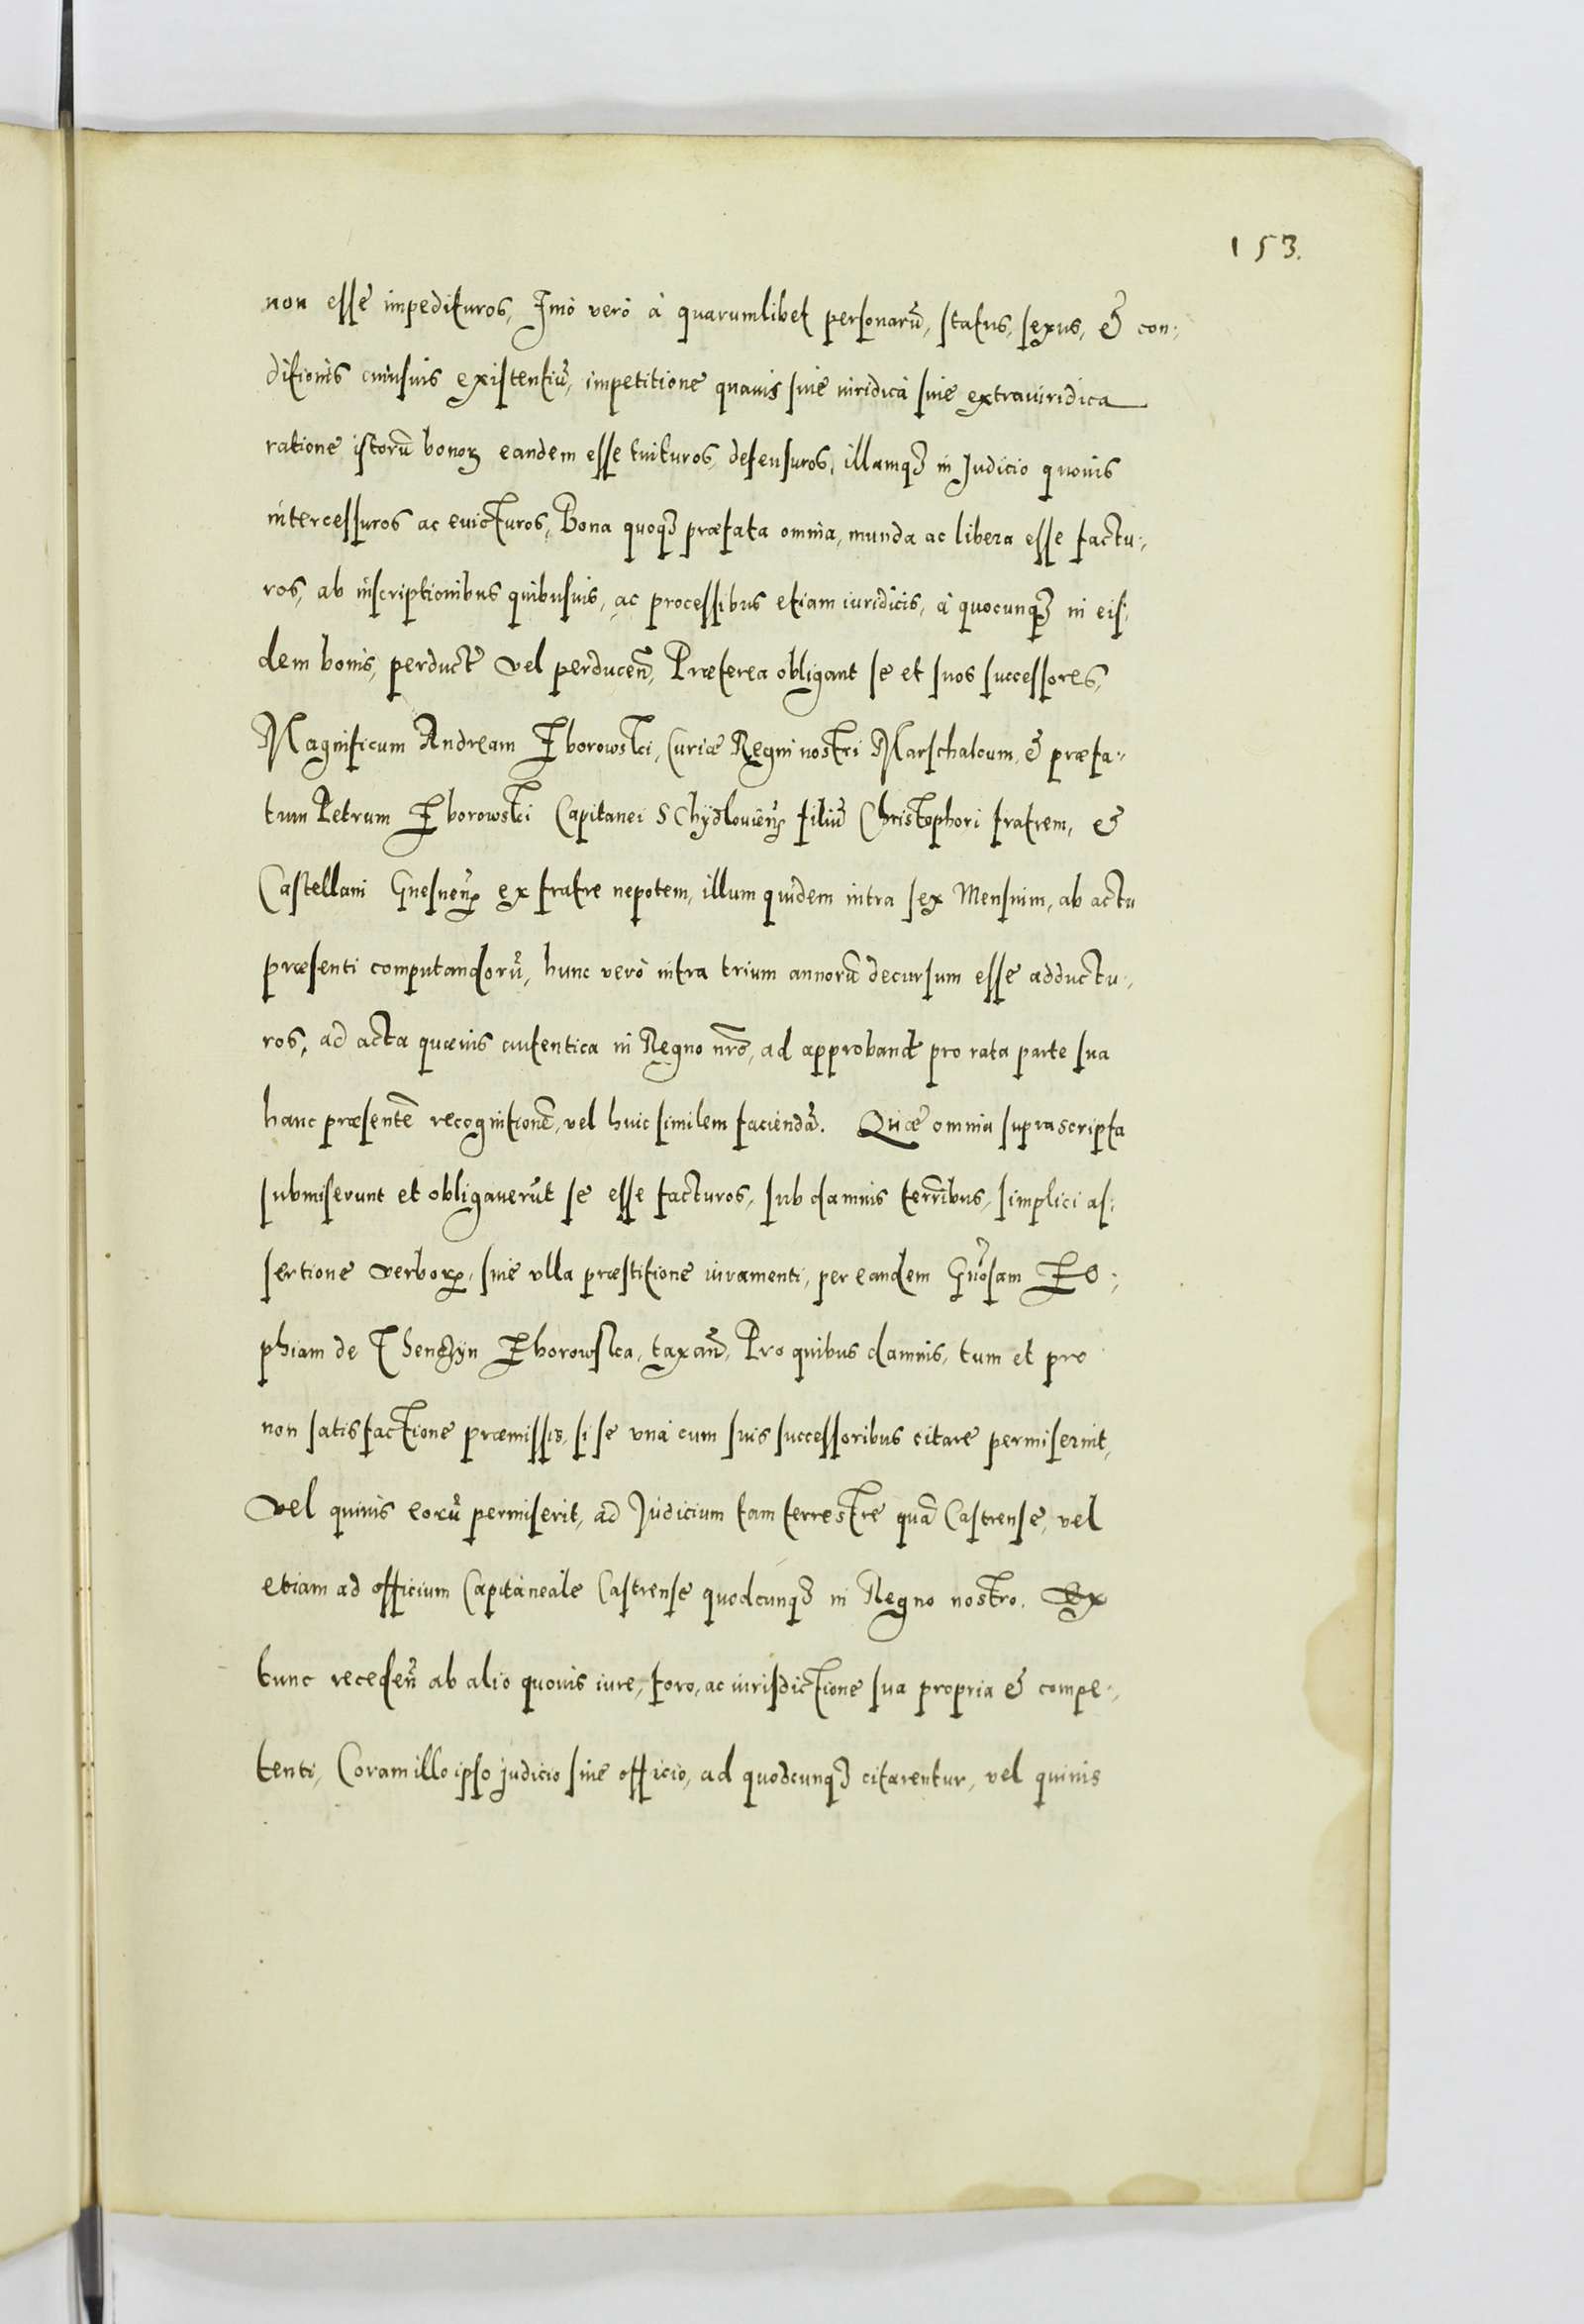 153.
non esse impedituros, Imò verò à quarumlibet personarũ, status, sexus, & con:
ditionis cuiusuis existentiũ, impetitione quauis siue iuridica siue extraiuridica
ratione istorũ bonoꝝ eandem esse tuituros, defensuros, illamqꝫ in Judicio quouis
intercessuros ac euicturos, Bona quoqꝫ præfata omnia, munda ac libera esse factu:
ros, ab inscriptionibus quibusuis, ac processibus etiam iuridicis, à quocunqꝫ in eis:
dem bonis, perduct̃ vel perducen̄, Præterea obligant se et suos successores,
Magnificum Andream Zborowski, Curiæ Regni nostri Marschalcum, & præfa:
tum Petrum Zborowski Capitanei SChÿdlouien̄ filiũ Christophori fratrem, &
Castellani Gnesnen̄ ex fratre nepotem, illum quidem intra sex Mensium, ab actu
præsenti computandorũ, hunc verò intra trium annorũ decursum esse adductu:
ros, ad acta quæuis autentica in Regno nr̄o, ad approband̄ pro rata parte sua
hanc præsentẽ recognitionẽ, vel huic similem faciendã. Quæ omnia suprascripta
submiserunt et obligauerũt se esse facturos, sub damnis terr̄ibus, simplici as:
sertione verboꝝ, siue vlla præstitione iuramenti, per eandem Gñosam Zo:
phiam de Thenczÿn Zborowska, taxan̄, Pro quibus damnis, tum et pro
non satisfactione præmissis, si se vnà cum suis successoribus citare permiserint,
vel quiuis eorũ permiserit, ad Judicium tam terrestre quã Castrense, vel
etiam ad officium Capitaneale Castrense quodcunqꝫ in Regno nostro. Ex
tunc receden̄ ab alio quouis iure, foro, ac iurisdictione sua propria & compe:
tenti, Coram illo ipso judicio siue officio, ad quodcunqꝫ citarentur, vel quiuis